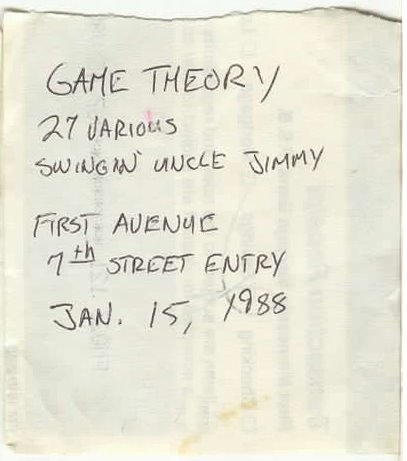 GAME THEORY
27 VARIOUS
SWINGIN' UNCLE JIMMY
FIRST AVENUE
7th STREET ENTRY
JAN. 15, 1988